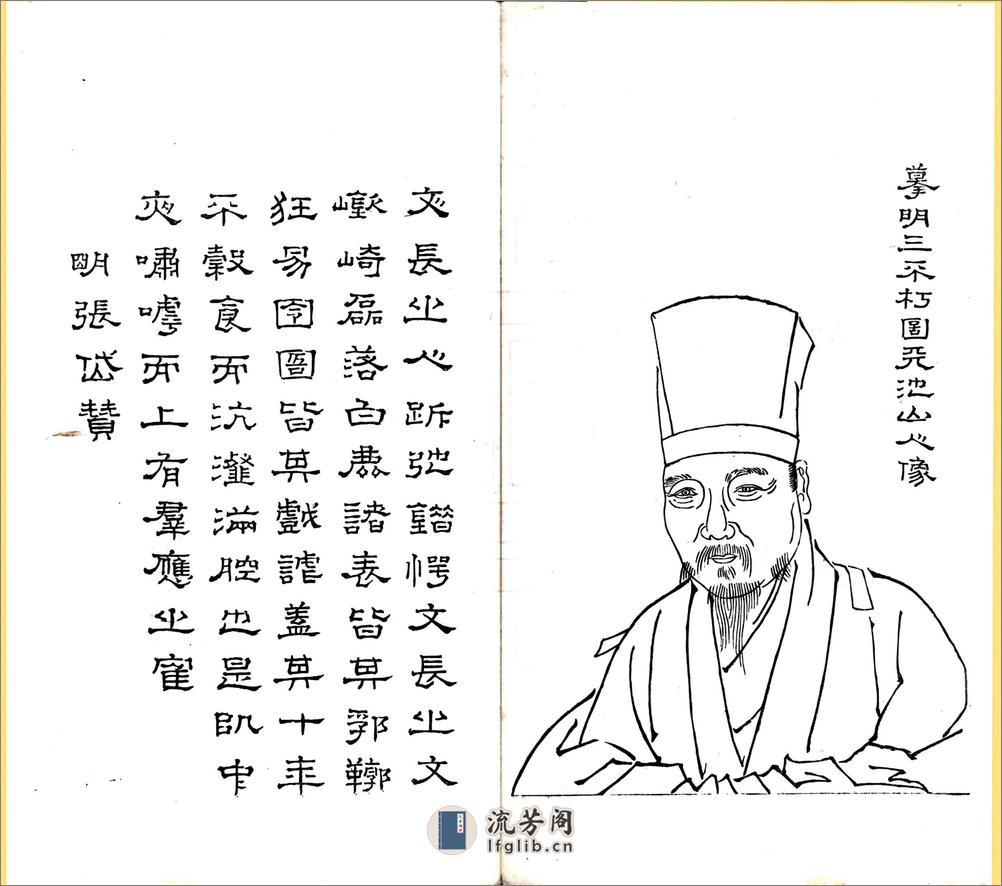 摹明三不朽圖天池山人像
文長之人跅弛譖愕文長之文
嶔崎磊落白鹿諸表皆其郛鞹
狂易囹圄皆其戲謔蓋其十年
不穀食而沆瀣滿腔也是即中
夜嘯嘑而上有羣應之寉
明張岱贊
流芳阁
lfglib.cn